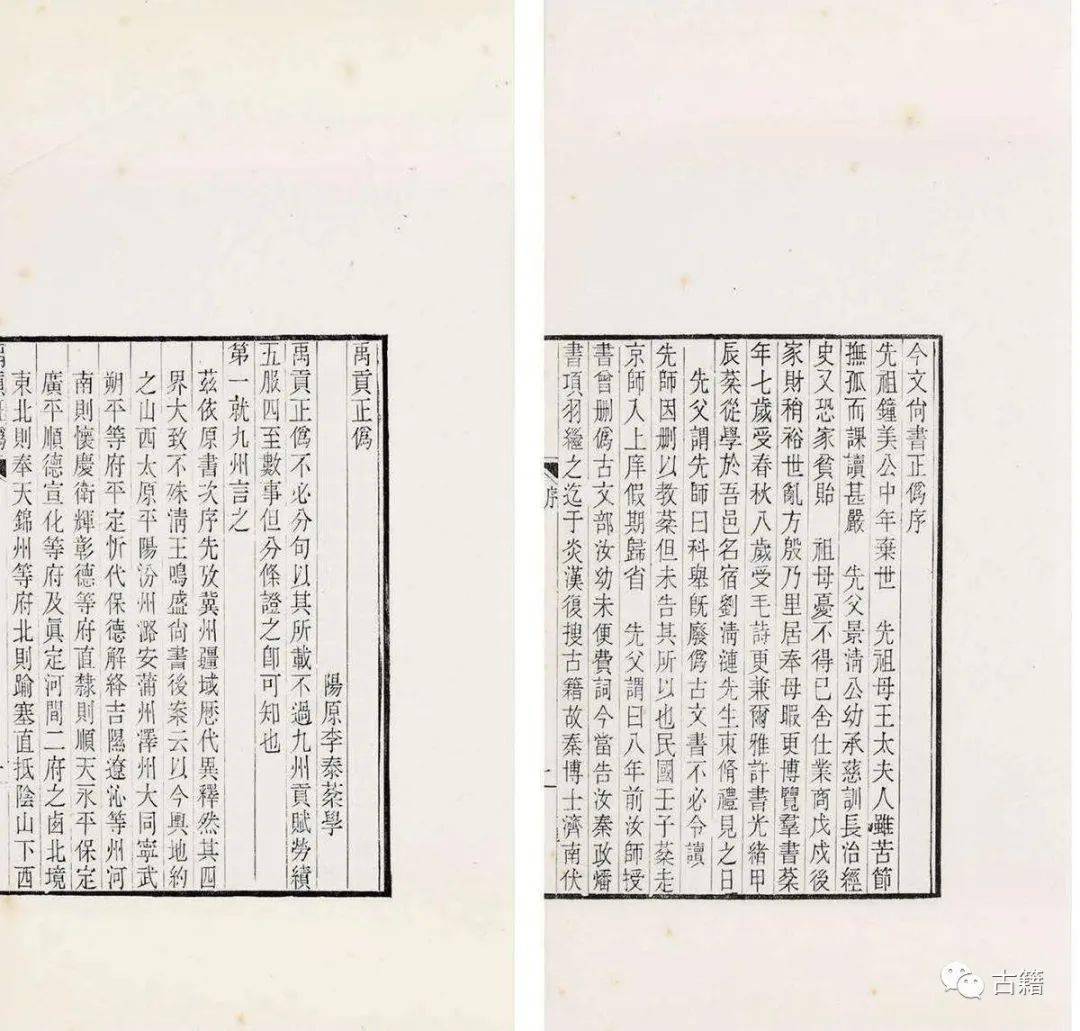 今文尙書正僞序
先祖鐘美公中年棄世　先祖母王太夫人雖苦節
撫孤而課讀甚嚴　先父景淸公幼承慈訓長治經
史又恐家貧貽　祖母憂不得已舍仕業商戊戌後
家財稍裕世亂方殷乃里居奉母暇更博覽羣書棻
年七歲受春秋八歲受毛詩更兼爾雅許書光緒甲
辰棻從學於吾邑名宿劉淸漣先生束脩禮見之日
先父謂先師曰科舉旣廢僞古文書不必令讀
先師因刪以敎棻但未吿其所以也民國壬子棻走
京師入上庠假期歸省　先父謂曰八年前汝師授
書曾刪僞古文部汝幼未便費詞今當吿汝秦政燔
書項羽繼之迄于炎漢復搜古籍故秦博士濟南伏
序
一
禹貢正僞
陽原李泰棻學
禹貢正僞不必分句以其所載不過九州貢賦勞績
五服四至數事但分條證之卽可知也
第一就九州言之
茲依原書次序先攷冀州疆域歷代異釋然其四
界大致不殊淸王鳴盛尙書後案云以今輿地約
之山西太原平陽汾州潞安蒲州澤州大同寧武
朔平等府平定忻代保德解絳吉隰遼沁等州河
南則懷慶衛輝彰德等府直隸則順天永平保定
廣平順德宣化等府及眞定河間二府之鹵北境
東北則奉天錦州等府北則踰塞直抵陰山下西
古籍